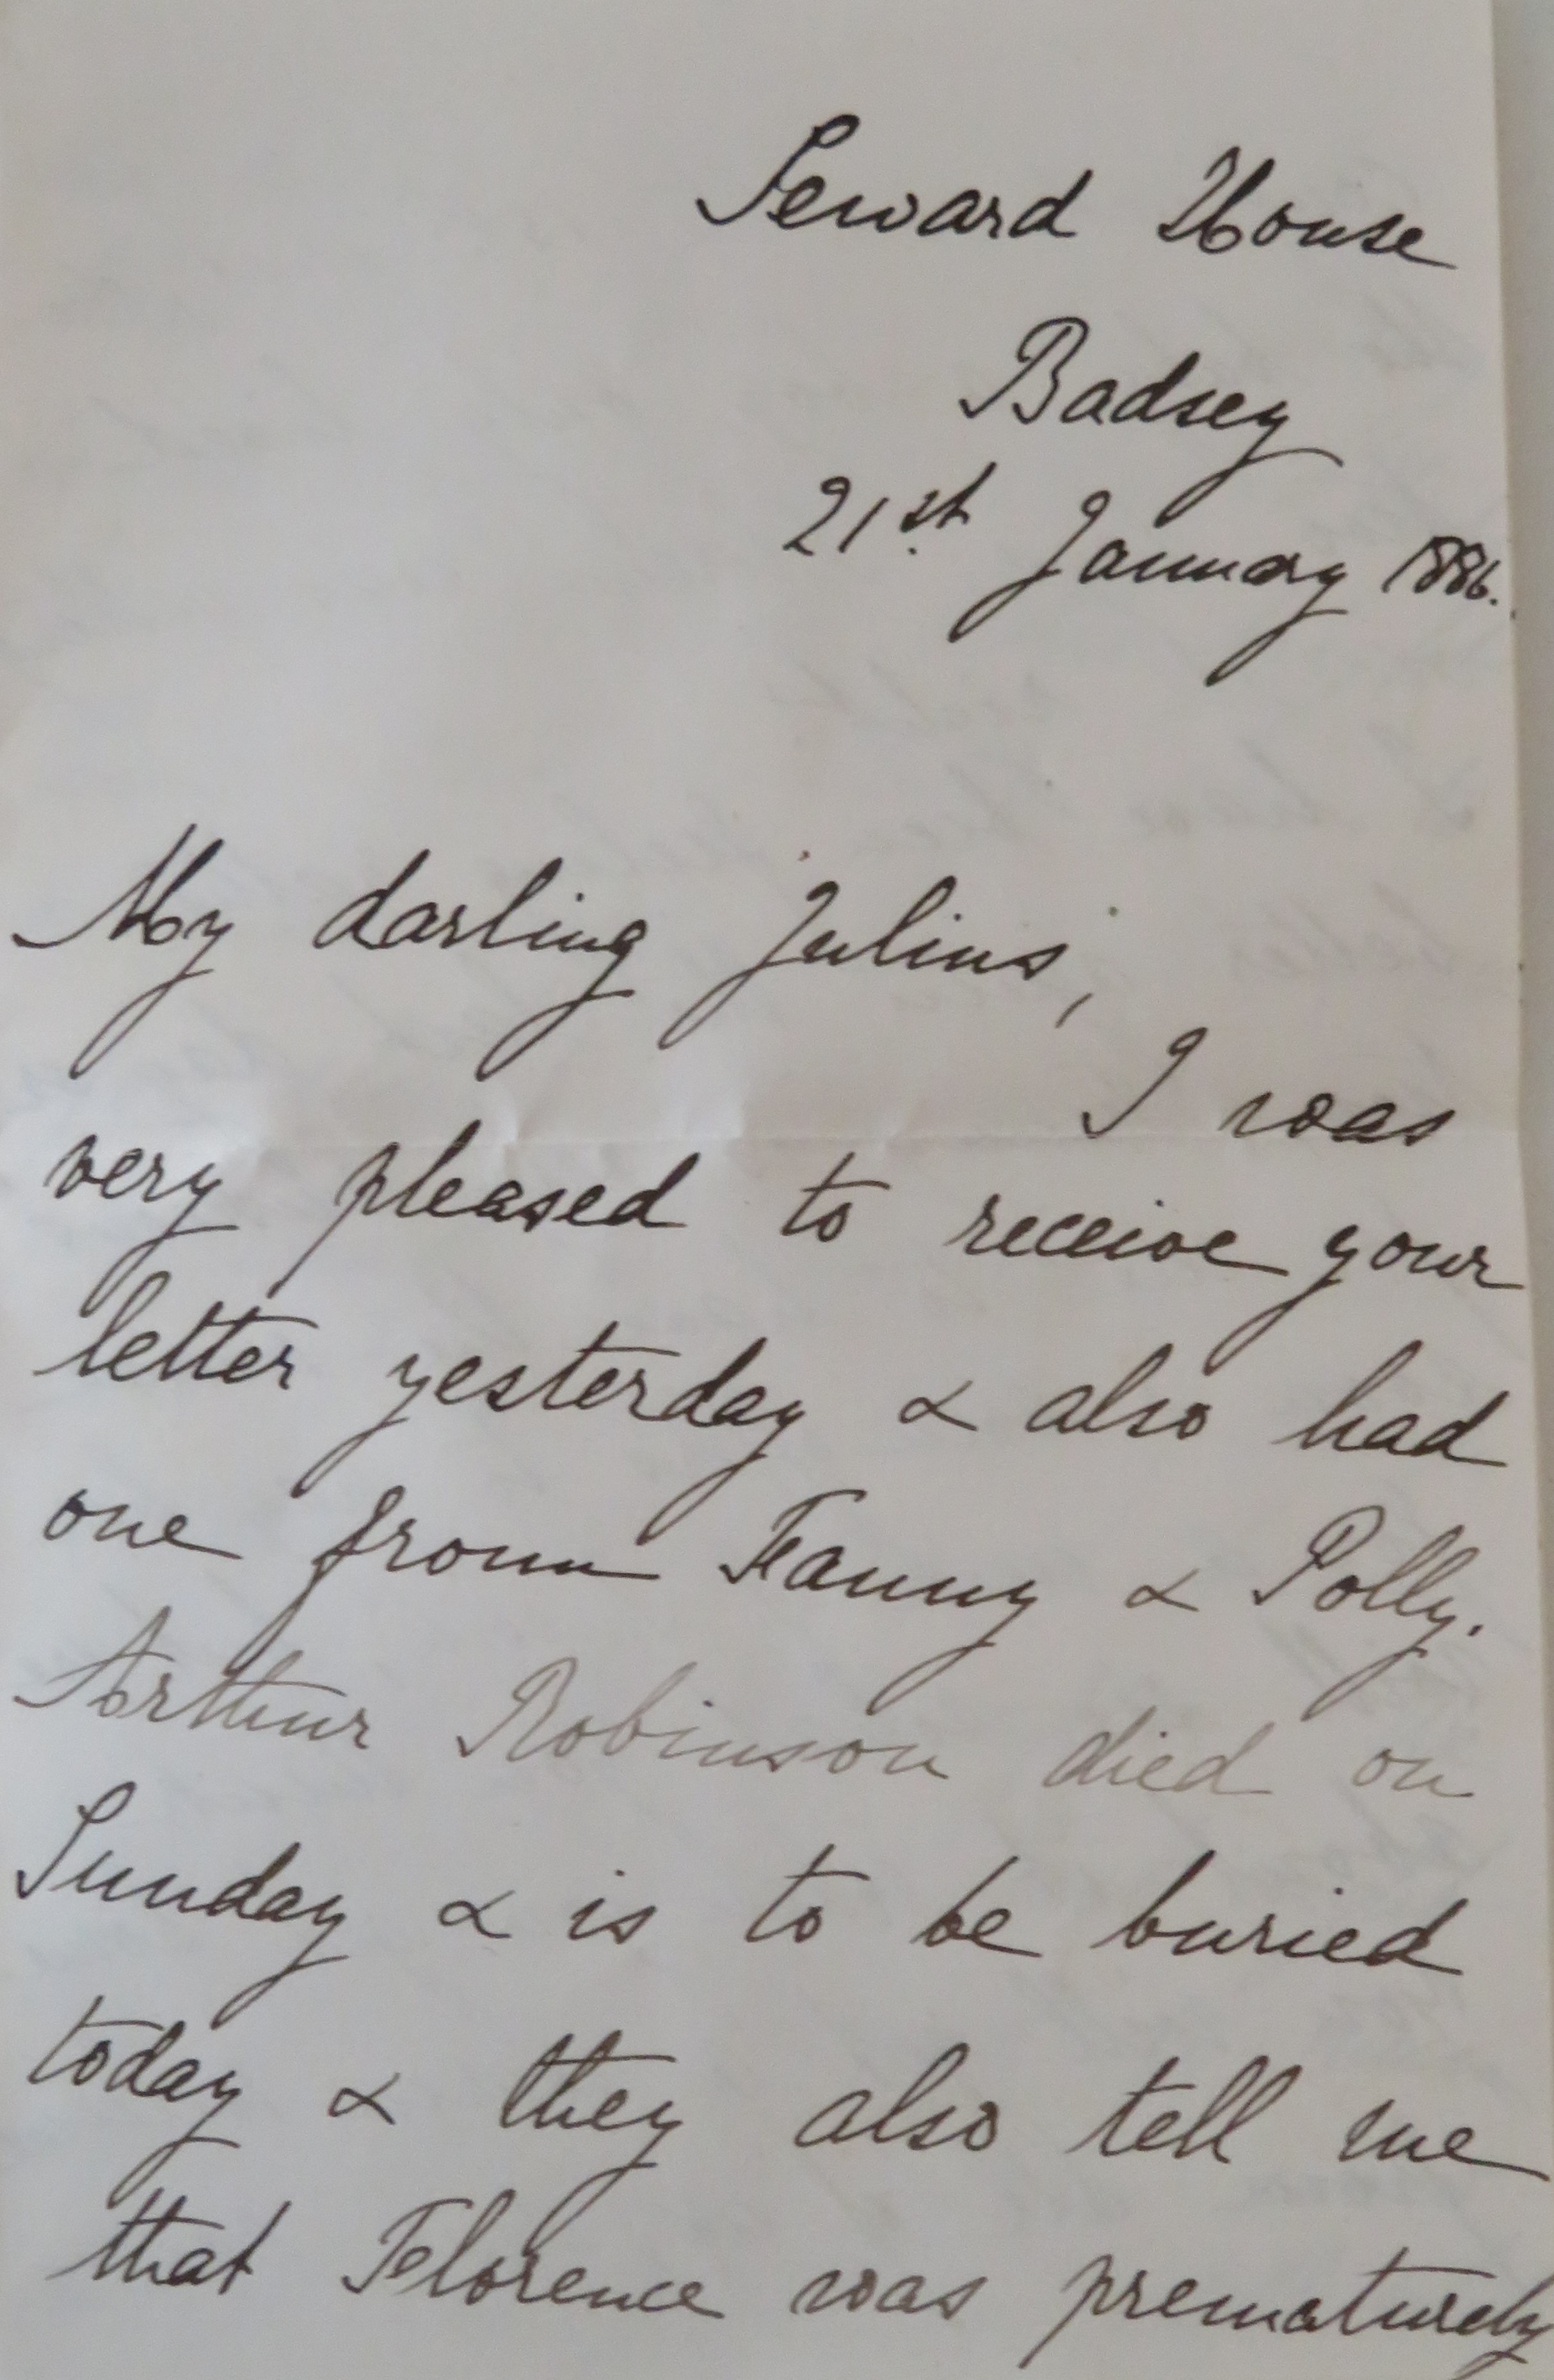 Seward House
Badsey
21st January 1886.
My darling Julius,
I was
very pleased to receive your
letter yesterday & also had
one from Fanny & Polly.
Arthur Robinson died on
Sunday & is to be buried
today & they also tell me
that Florence was prematurely